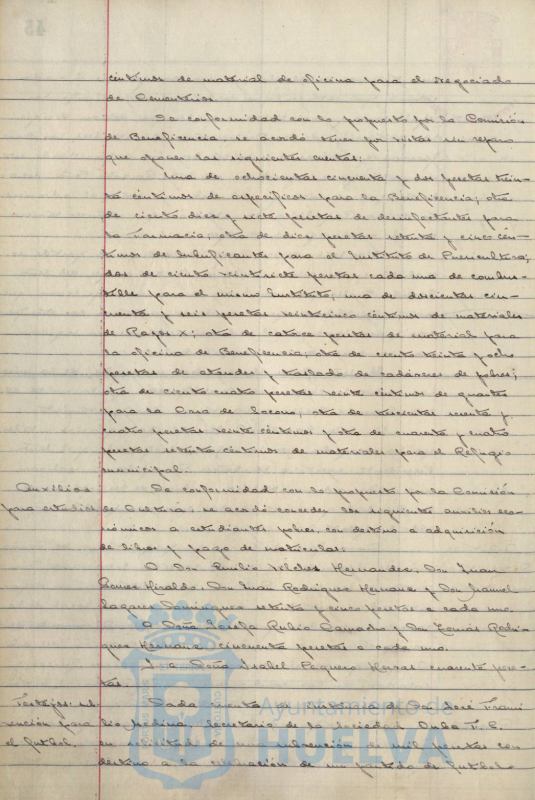 céntimos de material de oficina para el Negociado
de Cementerios.
De conformidad con lo propuesto por la Comisión
de Beneficencia se acordó tener por vistas sin reparo
que oponer las siguientes cuentas:
Una de ochocientas cincuenta y dos pesetas trein-
ta céntimos de específicos para la Beneficencia; otra
de ciento diez y siete pesetas de desinfectantes para
la Farmacia; otra de diez pesetas setenta y cinco cén-
timos de lubrificantes para el Instituto de Puericultura;
dos de ciento veintisiete pesetas cada una de combus-
tible para el mismo Instituto; una de doscientas cin-
cuenta y seis pesetas veinticinco céntimos de materiales
de Rayos X; otra de catorce pesetas de material para
la oficina de Beneficencia; otra de ciento veinte y ocho
pesetas de ataudes y traslado de cadáveres de pobres;
otra de ciento cuatro pesetas veinte céntimos de guantes
para la Casa de Socorro; otra de trescientas sesenta y
cuatro pesetas veinte céntimos y otra de cuarenta y cuatro
pesetas setenta céntimos de materiales para el Refugio
municipal.
Auxilios
para estudios
De conformidad con lo propuesto por la Comisión
de Cultura, se acordó conceder los siguientes auxilios eco-
nómicos a estudiantes pobres, con destino a adquisición
de libros y pago de matrículas:
A Don Emilio Vilches Hernandez, Don Juan
Gomez Hiraldo, Don Juan Rodriguez Hermana y Don Manuel
Lagares Dominguez setenta y cinco pesetas a cada uno.
A Doña Josefa Rubio Camacho y Don Tomás Rodri-
guez Hermana cincuenta pesetas a cada uno.
Y a Doña Isabel Peguero Heras cuarenta pese-
tas.
Festejos: sub-
vención para
el futbol.
Dada cuenta de instancia de Don José
Medina, Secretario de la Sociedad Onuba F. C.
en solicitud de una subvención de mil pesetas con
destino a la celebración de un partido de futbol
Ayuntamiento de
HUELVA